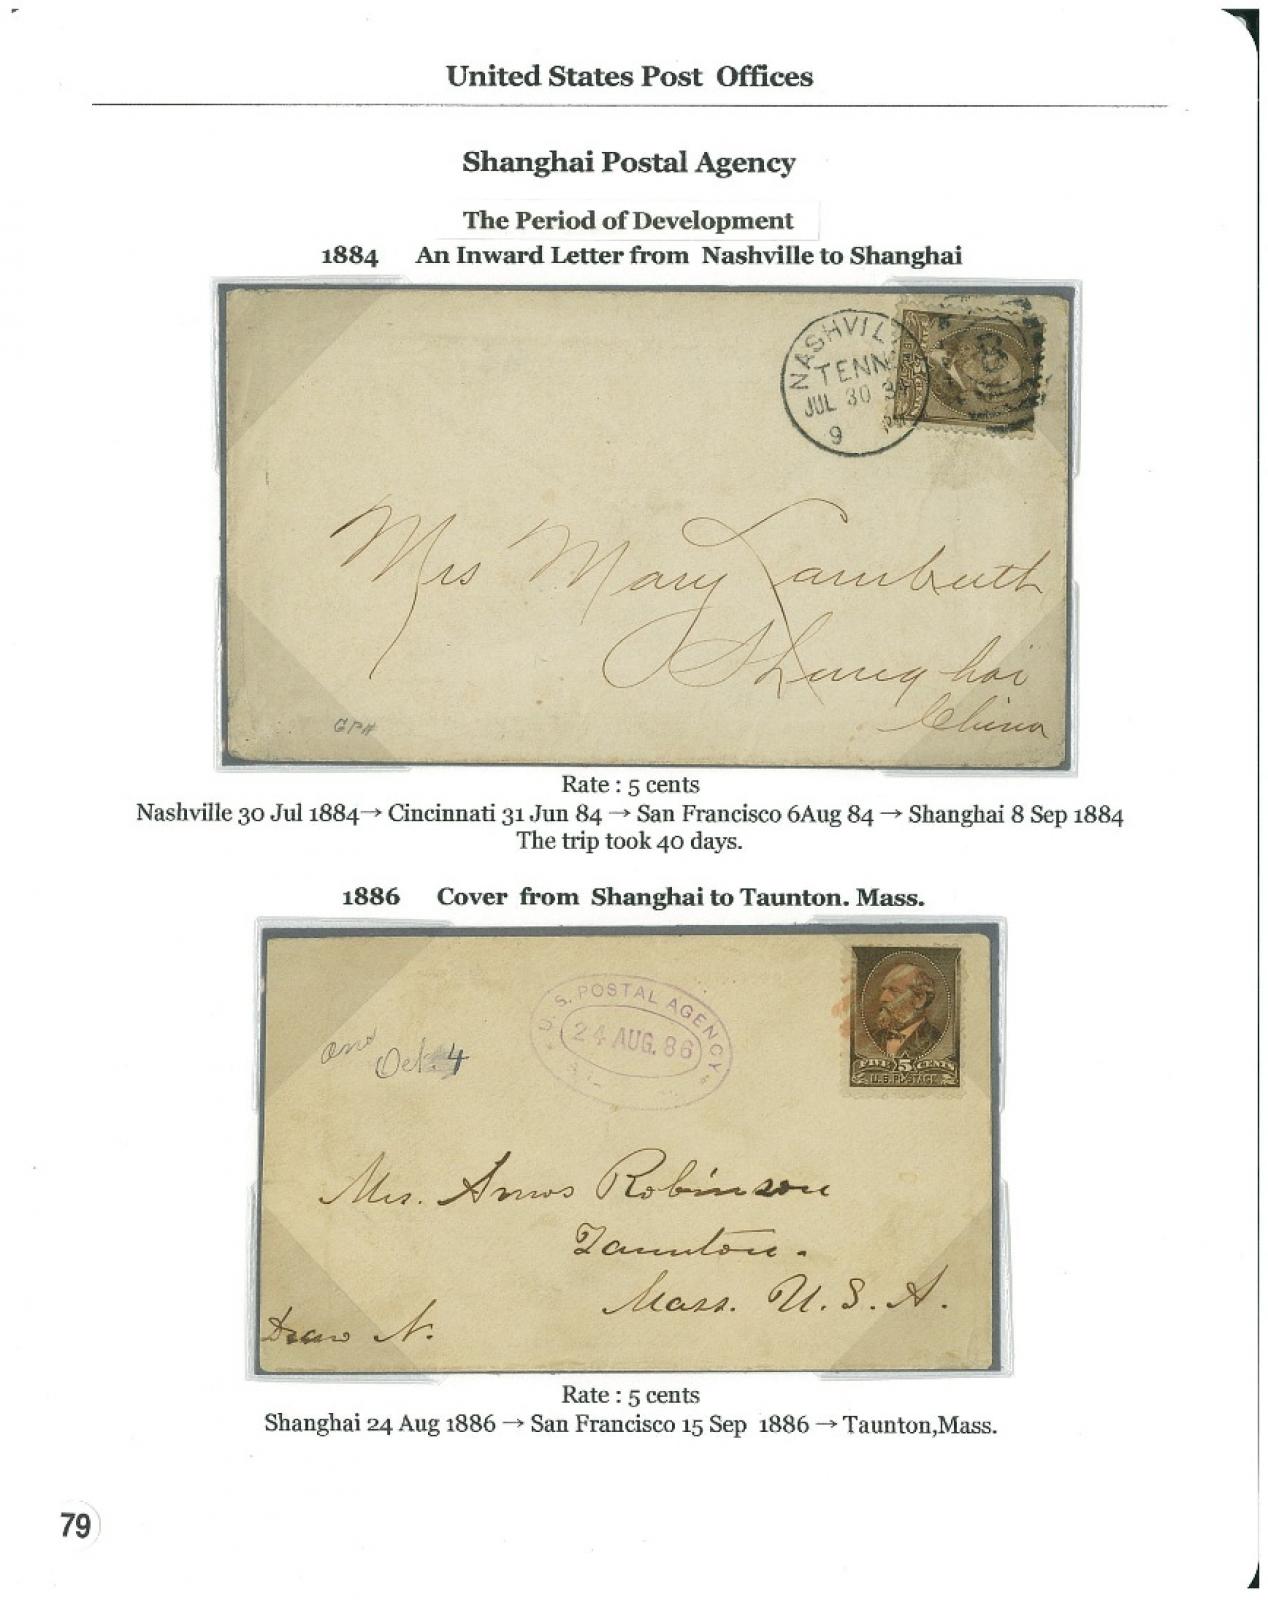 United States Post Offices
Shanghai Postal Agency
The Period of Development
1884 An Inward Letter from Nashville to Shanghai
NASHVILL
TENN.
JUL 30 84
9 PM
8
Mrs Mary Lambuth
Shanghai
China
GPH
Rate : 5 cents
Nashville 30 Jul 1884→ Cincinnati 31 Jun 84 → San Francisco 6Aug 84 → Shanghai 8 Sep 1884
The trip took 40 days.
1886 Cover from Shanghai to Taunton. Mass.
U. S. POSTAL AGENCY
24 AUG. 86
FIVE 5 CENTS
U.S. POSTAGE
ans
Oct. 4
Mrs. Amos Robinson
Taunton.
Mass. U. S. A.
Draw N.
Rate : 5 cents
Shanghai 24 Aug 1886 → San Francisco 15 Sep 1886 → Taunton,Mass.
79